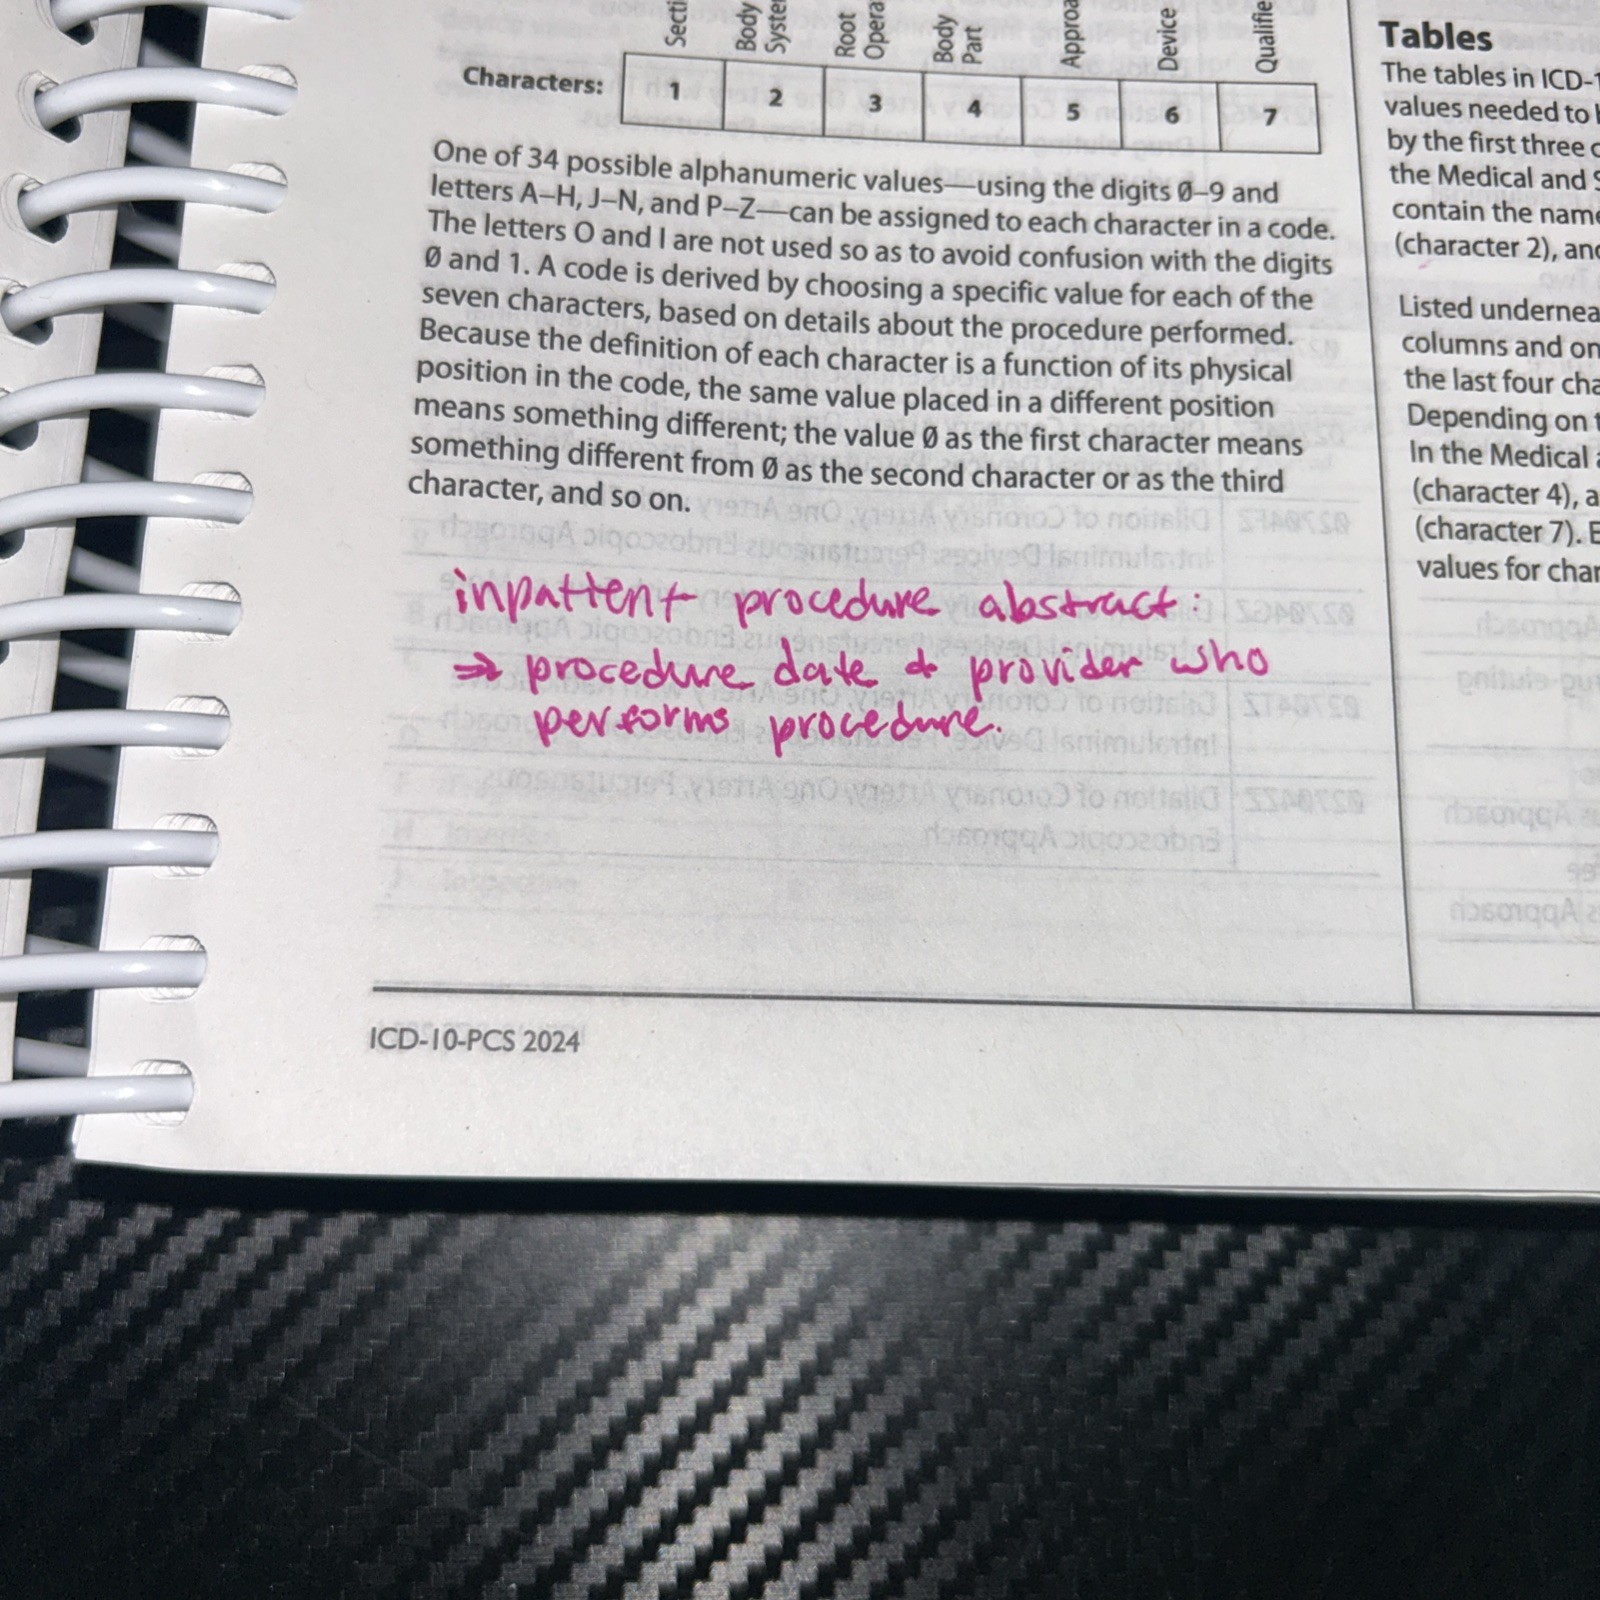 Body
System
Root
Body
Part
Device
Characters: 1 2 3 4 5 6 7
One of 34 possible alphanumeric values—using the digits Ø–9 and
letters A–H, J–N, and P–Z—can be assigned to each character in a code.
The letters O and I are not used so as to avoid confusion with the digits
Ø and 1. A code is derived by choosing a specific value for each of the
seven characters, based on details about the procedure performed.
Because the definition of each character is a function of its physical
position in the code, the same value placed in a different position
means something different; the value Ø as the first character means
something different from Ø as the second character or as the third
character, and so on.
inpatient procedure abstract:
⇒ procedure date + provider who
performs procedure.
ICD-10-PCS 2024
Tables
The tables in ICD-1
values needed to
by the first three
the Medical and
contain the name
(character 2), and
Listed undernea
columns and on
the last four cha
Depending on
In the Medical
(character 4), a
(character 7).
values for char